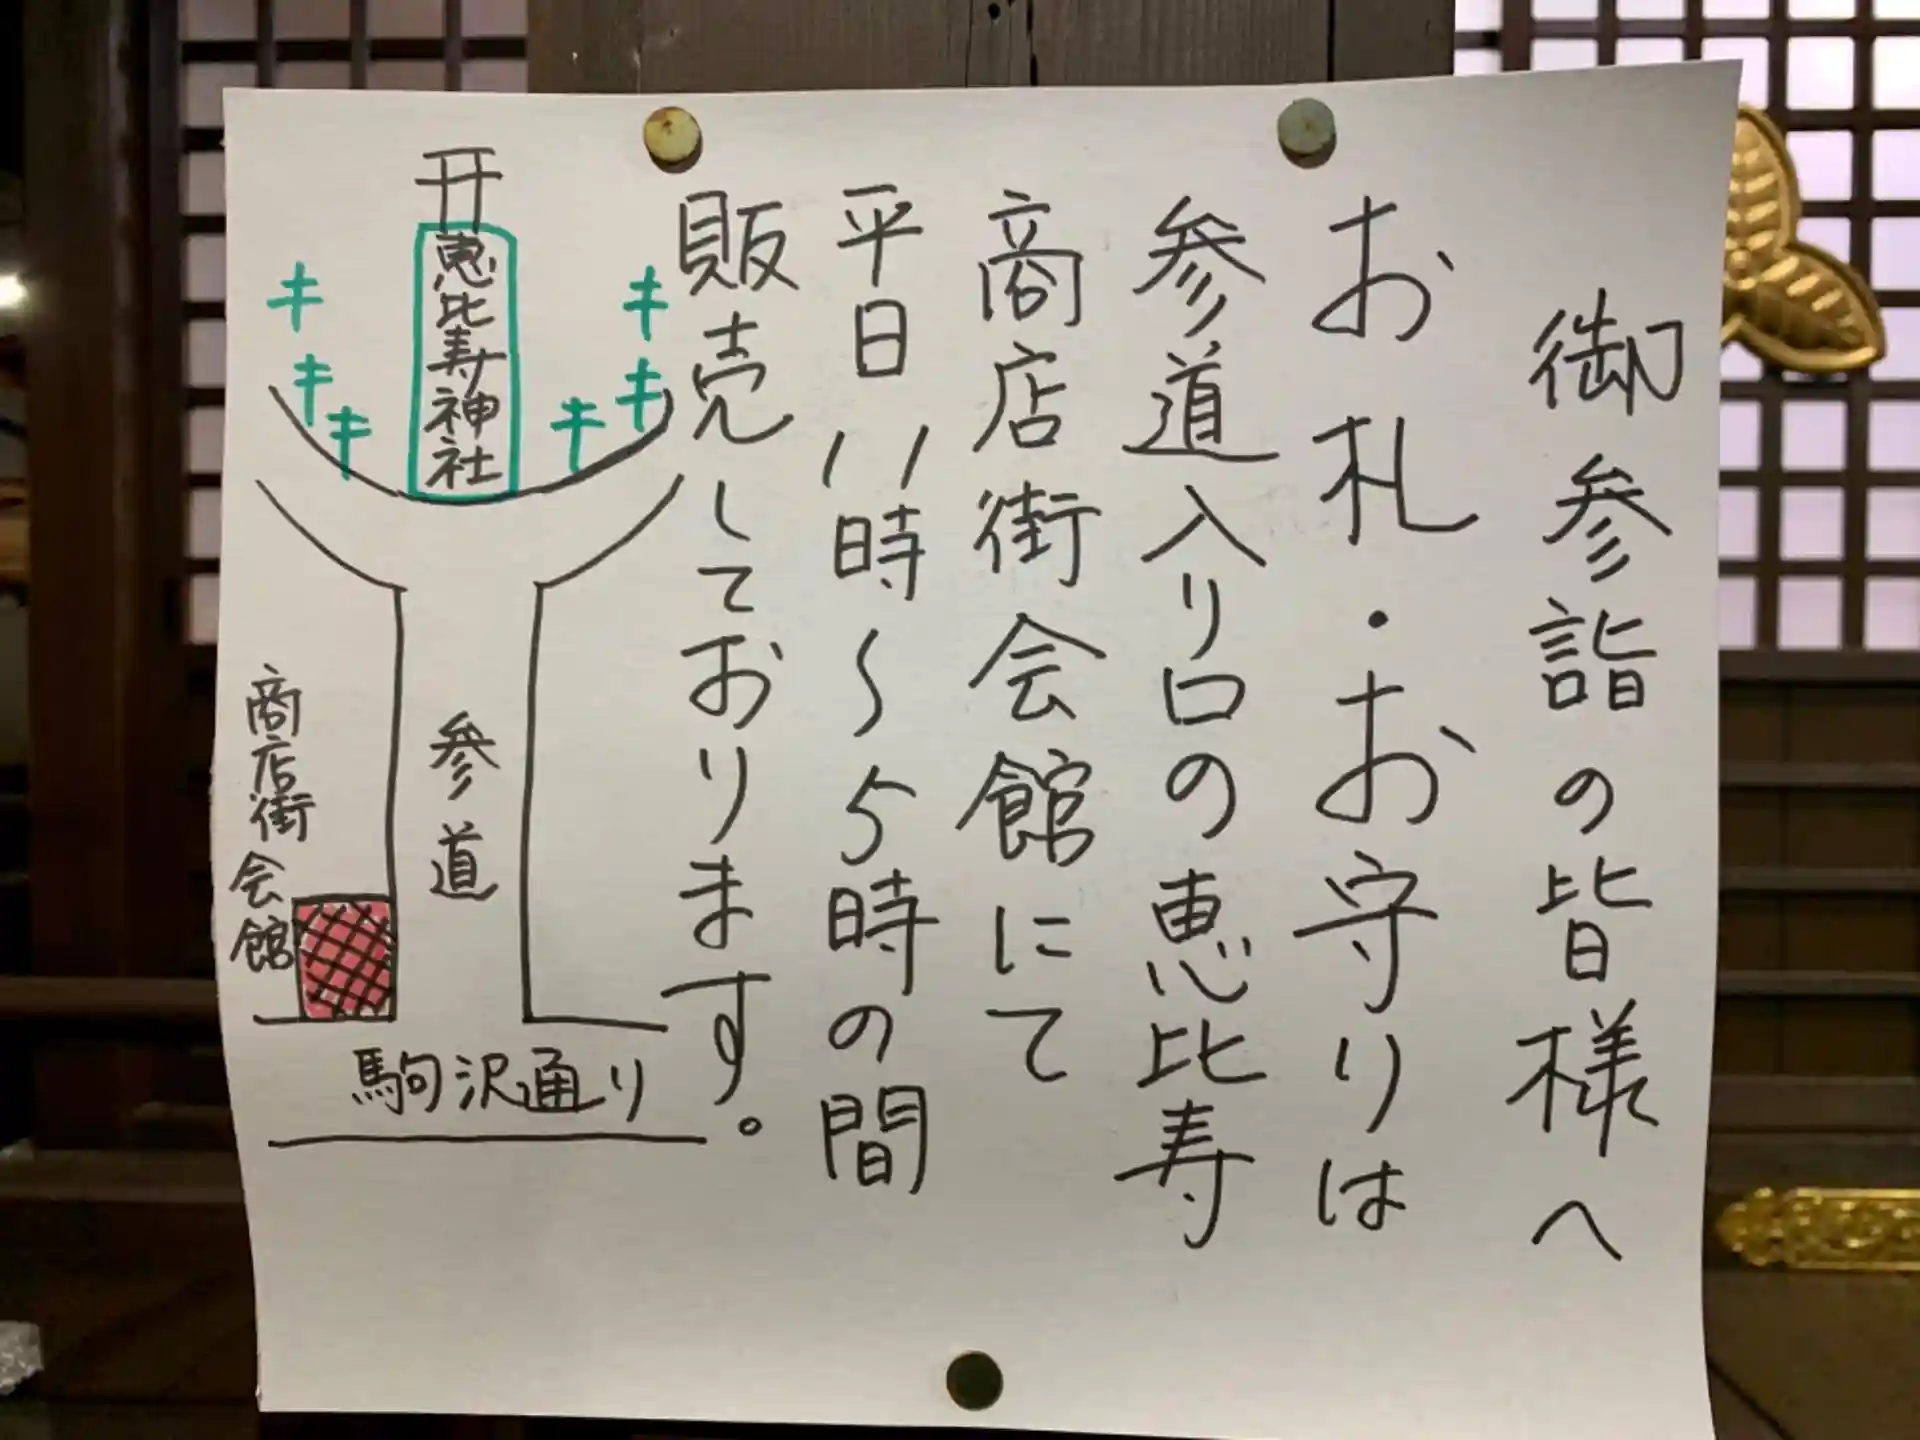 御参詣の皆様へ
お札・お守りは
参道入り口の恵比寿
商店街会館にて
平日11時〜5時の間
販売しております。
恵比寿神社
キ
キ
キ
キ
キ
キ
商店街会館
参道
駒沢通り